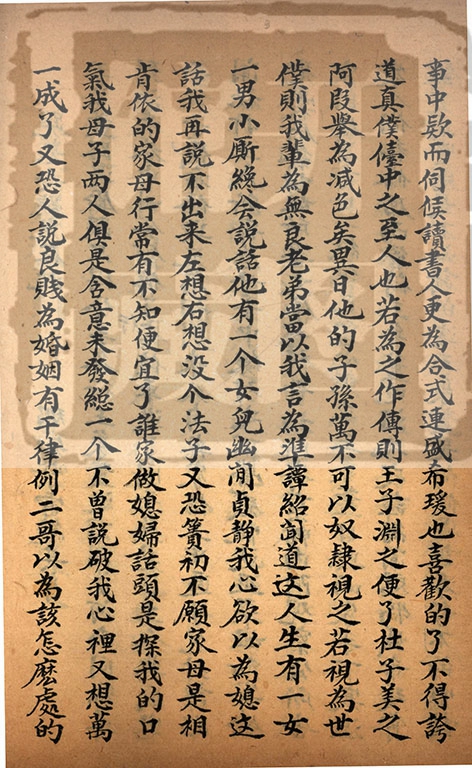 事中欵而伺候讀書人更為合式連盛希瑗也喜歡的了不得誇
道真僕儓中之至人也若為之作傳則王子淵之便了杜子美之
阿段舉為減色矣異日他的子孫萬不可以奴隸視之若視為世
僕則我輩為無良老弟當以我言為準譚紹聞道这人生有一女
一男小厮纔会説話他有一个女兒幽閒貞静我心欲以為媳这
話我再説不出来左想右想没个法子又恐簣初不願家母是相
肯依的家母行常有不知便宜了誰家做媳婦話頭是探我的口
氣我母子两人俱是含意未發總一个不曾説破我心裡又想萬
一成了又恐人説良賤為婚姻有干律例二哥以為該怎麽處的